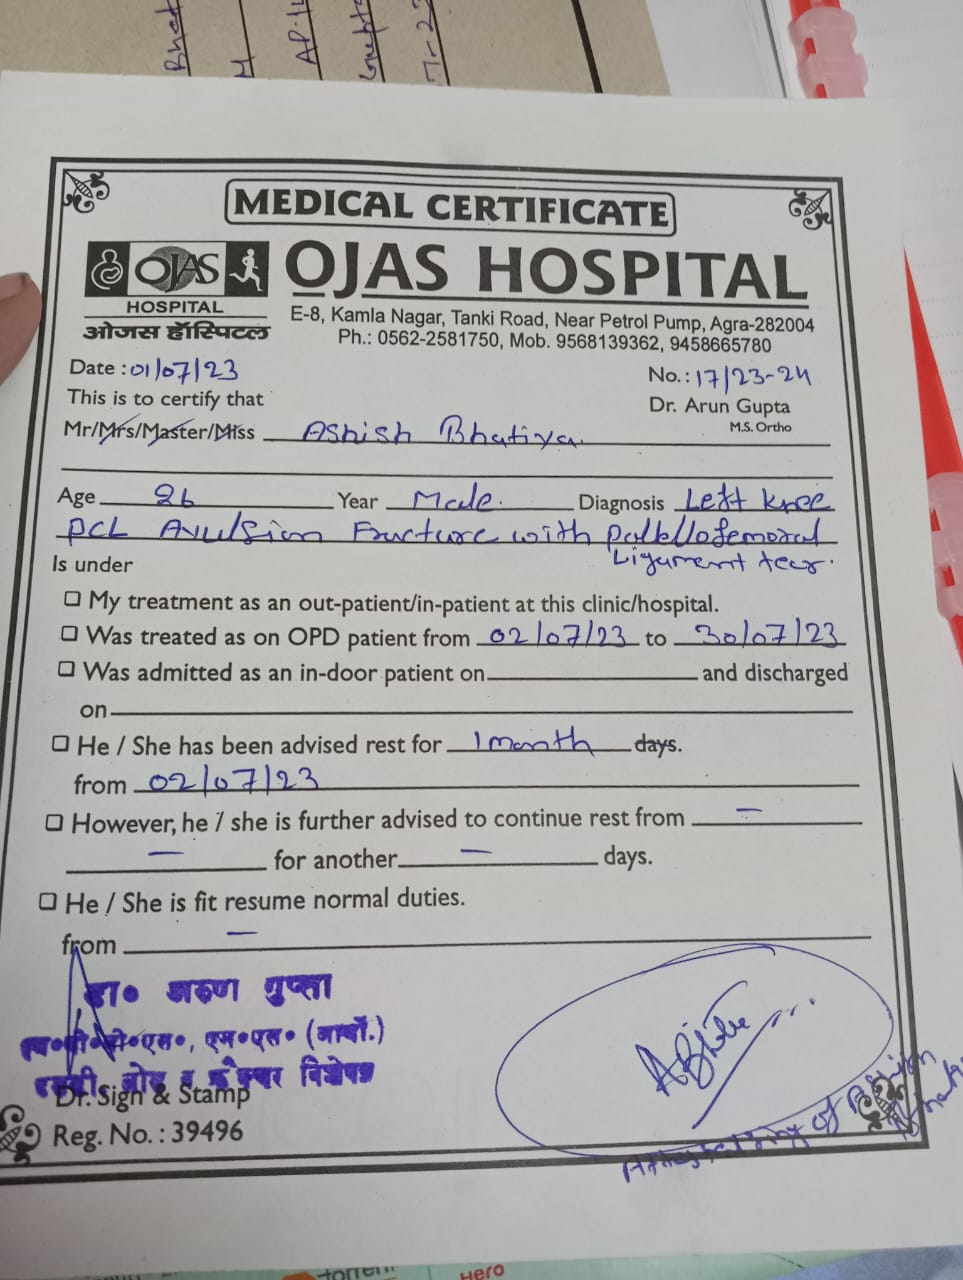 MEDICAL CERTIFICATE
OJAS
HOSPITAL
ओजस हॉस्पिटल
OJAS HOSPITAL
E-8, Kamla Nagar, Tanki Road, Near Petrol Pump, Agra-282004
Ph.: 0562-2581750, Mob. 9568139362, 9458665780
Date : 01/07/23
No.: 17/23-24
This is to certify that
Dr. Arun Gupta
M.S. Ortho
Mr/Mrs/Master/Miss Ashish Bhatiya.
Age 26 Year Male. Diagnosis Left knee
PCL Avulsion Fracture with
Ligament tear.
Is under
My treatment as an out-patient/in-patient at this clinic/hospital.
Was treated as on OPD patient from 02/07/23 to 30/07/23
Was admitted as an in-door patient on and discharged
on
He / She has been advised rest for 1 month days.
from 02/07/23
However, he / she is further advised to continue rest from —
— for another — days.
He / She is fit resume normal duties.
from —
डा० अरुण गुप्ता
एम०एस० (आर्थो.)
विशेषज्ञ
Dr. Sign & Stamp
Reg. No. : 39496
of
torrent
Hero